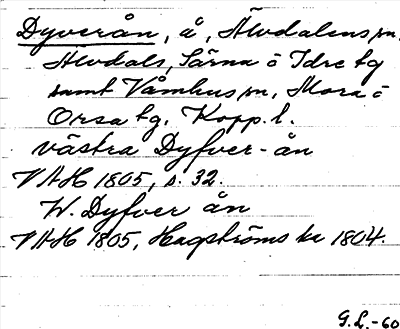 Dyverån, å, Älvdalens sn,
Älvdals, Särna o Idre tg
samt Våmhus sn, Mora o
Orsa tg, Kopp. l.
västra Dyfver-ån
VAH 1805, s. 32.
W. Dyfver ån
VAH 1805, Hagströms ka 1804.
G.L.-60